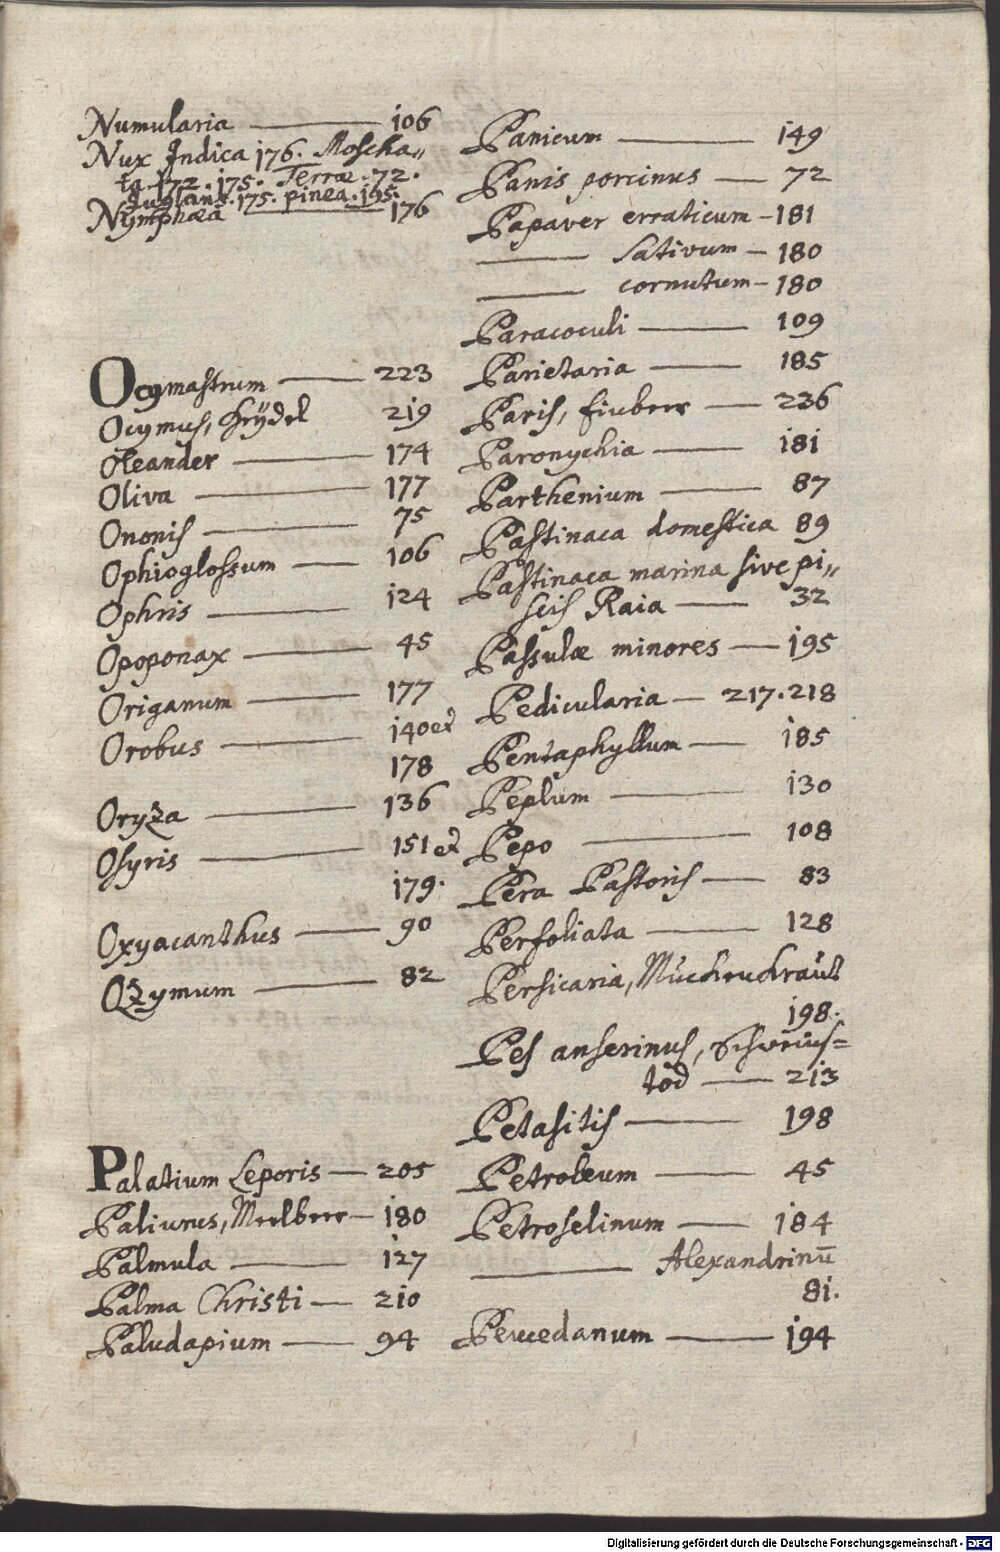 Numularia — 106
Nux Indica 176. Moscha„
ta 172. 175. Terræ. 72.
Juglans. 175. pinea. 195.
Nÿmphæa — 176
Ocymastrum — 223
Ocymus, 219
Oleander — 174
Oliva — 177
Ononis — 75
Ophioglossum — 106
Ophris — 124
Opoponax — 45
Origanum — 177
Orobus — 140 et
178
Oryza — 136
Osyris — 151 et
179.
Oxyacanthus — 90
Ozymum — 82
Palatium Leporis — 205
Paliurus, Meelbeer — 180
Palmula — 127
Palma Christi — 210
Paludapium — 94
Panicum — 149
Panis porcinus — 72
Papaver erraticum — 181
— sativum — 180
— cornutum — 180
Paracoculi — 109
Parietaria — 185
Paris, Einbeer — 236
Paronychia — 181
Parthenium — 87
Pastinaca domestica 89
Pastinaca marina sive pi„
scis Raia — 32
Passulæ minores — 195
Pedicularia — 217. 218
Pentaphyllum — 185
Peplum — 130
Pepo — 108
Pera Pastoris — 83
Perfoliata — 128
Persicaria, Muckenkraut
198.
Pes anserinus, Schweins=
tod — 213
Petasitis — 198
Petroleum — 45
Petroselinum — 184
— Alexandrinū
81.
Peucedanum — 194
Digitalisierung gefördert durch die Deutsche Forschungsgemeinschaft - DFG